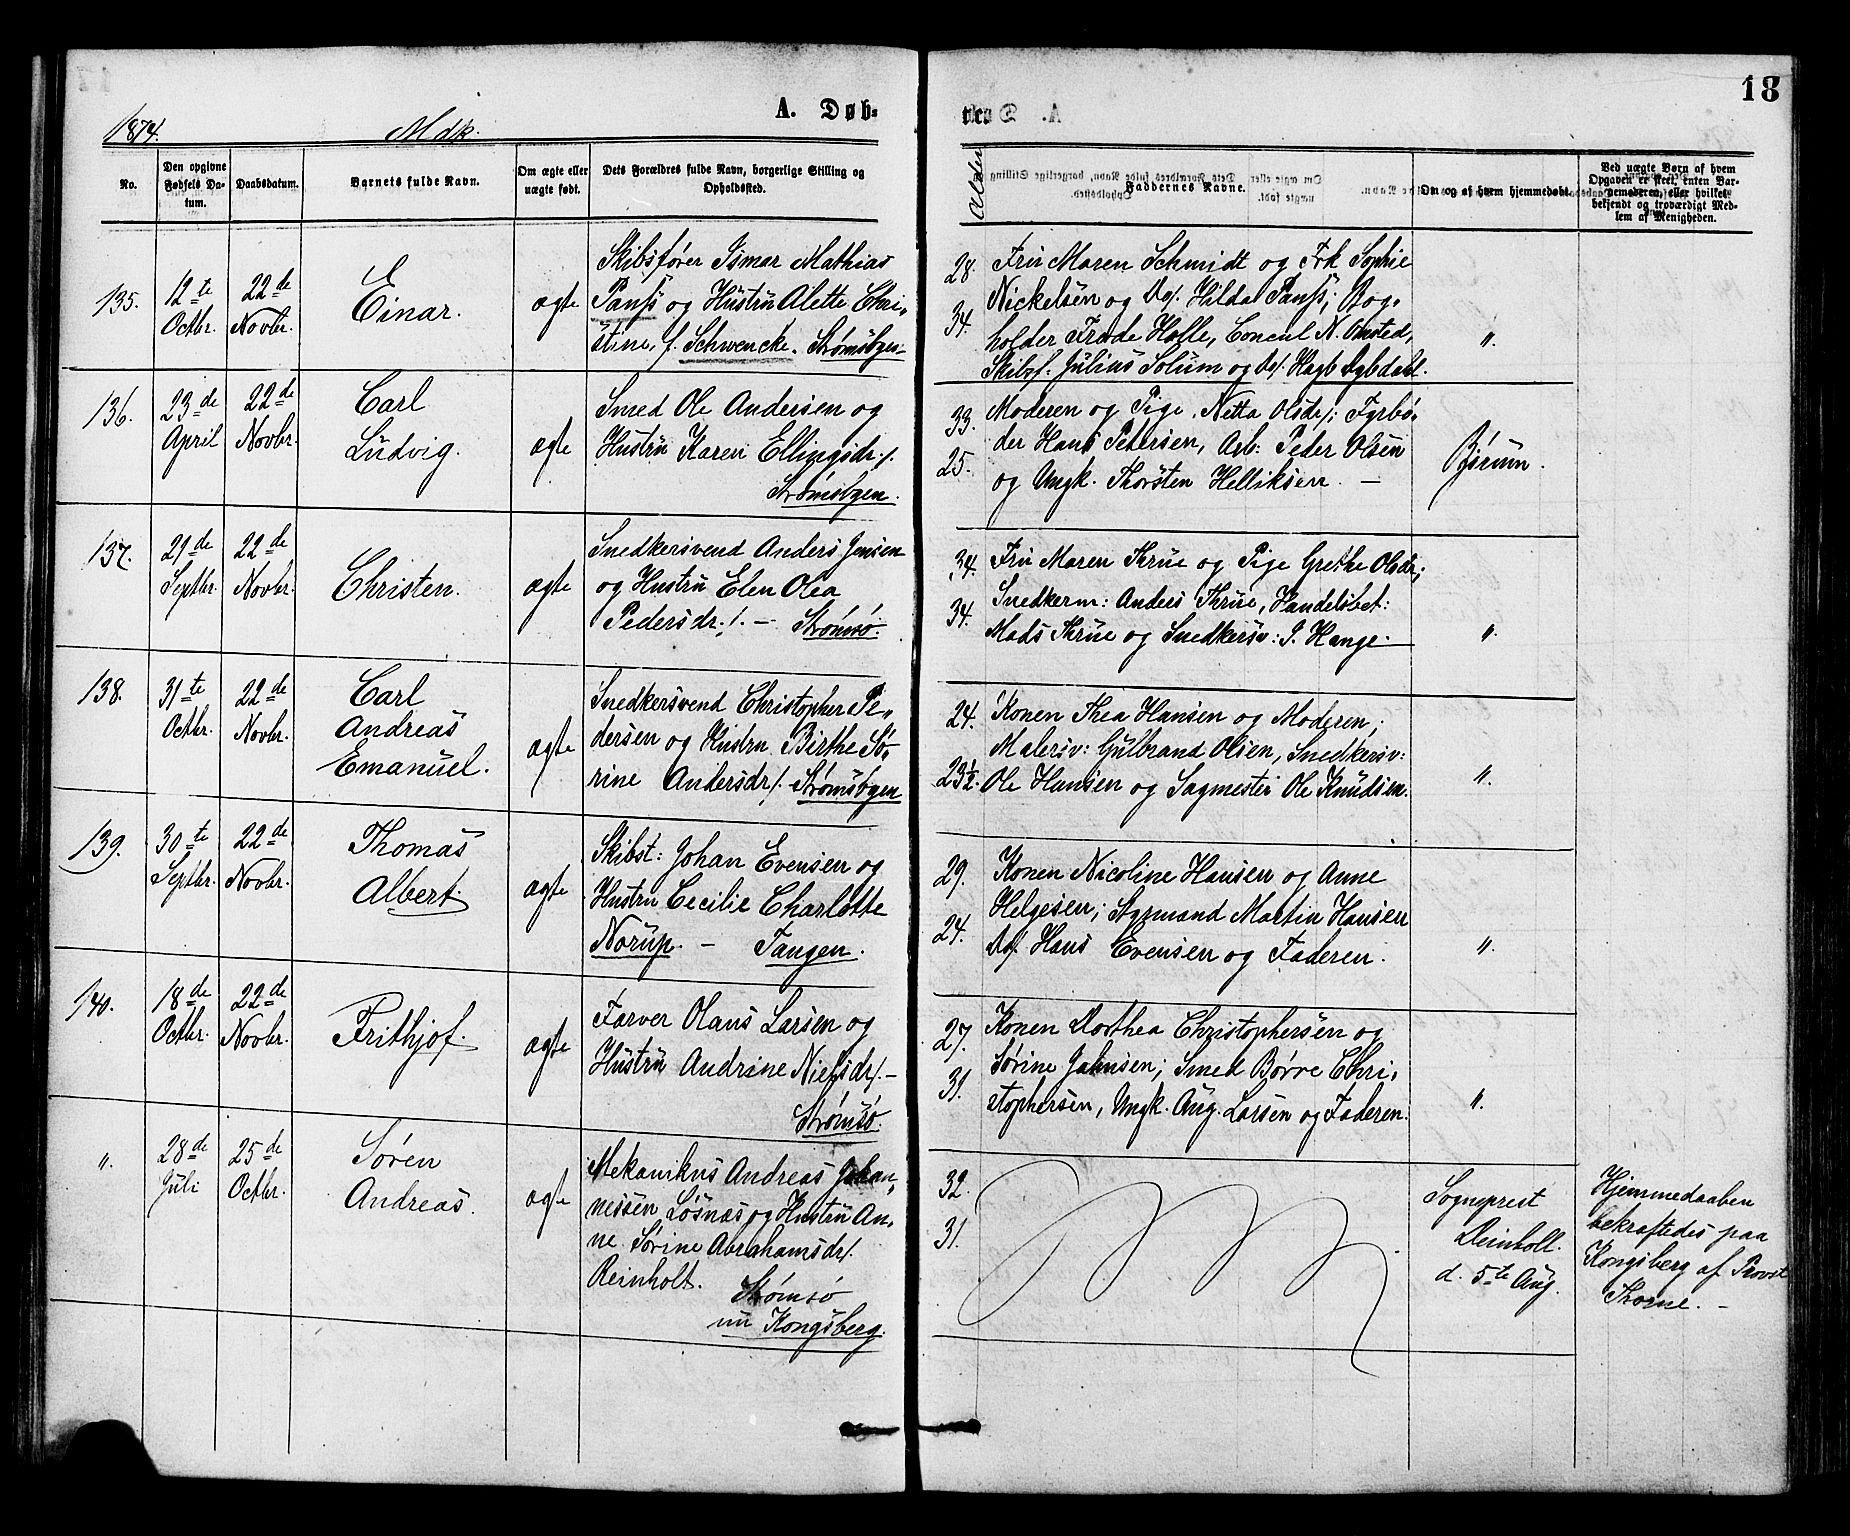 1874. Mdk. A. Døb-
No.
Den opgivne Fødsels Da-tum.
Daabsdatum.
Barnets fulde Navn.
Om ægte eller uægte født.
Dets Forældres fulde Navn, borgerlige Stilling og Opholdssted.
135.
12te Octbr.
22de Novbr.
Einar.
ægte
Skibsfører Ismar Mathias
Panss og Hustru Alette Chri-
stine, f. Schwencke. Strømsbgen.
136.
23de April
22de Novbr.
Carl
Ludvig.
ægte
Smed Ole Andersen og
Hustru Karen Ellingsdr./.
Strømsbgen.
137.
21de Septbr.
22de Novbr.
Christen.
ægte
Snedkersvend Anders Jensen
og Hustru Elen Olea
Pedersdr./. — Strømsø.
138.
31te Octbr.
22de Novbr.
Carl
Andreas
Emanuel.
ægte
Snedkersvend Christopher Pe-
dersen og Hustru Birthe Sø-
rine Andersdr/. Strømsbgen
139.
30te Septbr.
22de Novbr.
Thomas
Albert.
ægte
Skibst: Johan Evensen og
Hustru Cecilie Charlotte
Norup. — Tangen.
140.
18de Octbr.
22de Novbr.
Frithjof.
ægte
Farver Olaus Larsen og
Hustru Andrine Nielsdr/. —
Strømsø.
"
28de Juli
25de Octbr.
Søren
Andreas.
ægte
Mekanikus Andreas Johan-
nessen Løsnæs og Hustru An-
ne Sørine Abrahamsdr/.
Reinholt.
Strømsø
nu Kongsberg.
18
Alder
Faddernes Navne.
Om og af hvem hjemmedøbt.
Ved uægte Børn af hvem
Opgaven er skeet, enten Bar-
nemoderen, eller hvilket
bekjendt og troværdigt Med-
lem af Menigheden.
28.
34.
Fru Maren Schmidt og Frk Sophie
Nickelsen og Do/. Hilda Panss; Bog-
holder Frode Holle, Concul N. Omsted,
Skibsf. Julius Solum og Do/. Hagb Dybdahl.
"
33.
25.
Moderen og Pige. Netta Olsdr/; Fyrbø-
der Hans Petersen, Arb: Peder Olsen
og Ungk. Thorsten Helliksen. —
34.
34.
Fru Maren Thrue og Pige Grethe Olsdr;
Snedkerm: Anders Thrue, Handelsbet:
Mads Thrue og Snedkersv: J. Hange.
"
24.
23½.
Konen Thea Hansen og Moderen;
Malersv: Gulbrand Olsen, Snedkersv:
Ole Hansen og Sagmester Ole Knudsen.
"
29.
24.
Konen Nicoline Hansen og Anne
Helgesen; Styrmand Martin Hansen
Do/. Hans Evensen og Faderen.
"
27.
31.
Konen Dorthea Christophersen og
Sørine Johnsen; Smed Børre Chri-
stophersen, Ungk. Aug. Larsen og Faderen.
"
32.
31.
Sogneprest
Deinboll.
d. 5te Aug.
Hjemmedaaben
bekræftedes paa
Kongsberg af Provst
Thorne. —